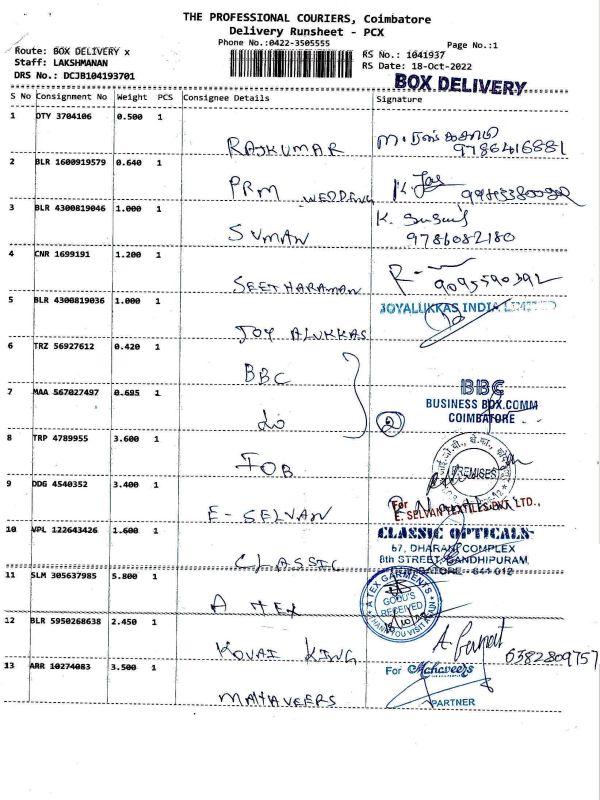 THE PROFESSIONAL COURIERS, Coimbatore
Delivery Runsheet - PCX
Phone No.:0422-3505555
Page No.:1
Route: BOX DELIVERY x
RS No.: 1041937
Staff: LAKSHMANAN
RS Date: 18-Oct-2022
DRS No.: DCJB104193701
BOX DELIVERY
S No Consignment No Weight PCS Consignee Details Signature
1 DTY 3704106 0.500 1
RAJKUMAR 9786416881
2 BLR 1600919579 0.640 1
PRM WEDDING
3 BLR 4300819046 1.000 1
SUMAN 9786082180
4 CNR 1699191 1.200 1
SEETHARAMAN 9095590392
5 BLR 4300819036 1.000 1
JOYALUKKAS INDIA LIMITED
JOY ALUKKAS
6 TRZ 56927612 0.420 1
BBC
BBC
7 MAA 567027497 0.695 1
BUSINESS BOX.COMM
COIMBATORE
do 2
8 TRP 4789955 3.600 1
IOB
PREMISES
9 DDG 4540352 3.400 1
For
E. SELVAN TEXTILES PVT. LTD.,
E-SELVAN
10 VPL 122643426 1.600 1
CLASSIC OPTICALS
67, DHARANI COMPLEX
8th STREET, GANDHIPURAM,
COIMBATORE - 641 012
CLASSIC
11 SLM 305637985 5.800 1
A TEX GARMENTS
GOOD'S
RECEIVED
THANK YOU VISIT AGAIN
A TEX
12 BLR 5950268638 2.450 1
KOVAI KING 6382809757
13 ARR 10274083 3.500 1
For Mahaveers
MAHAVEERS
PARTNER